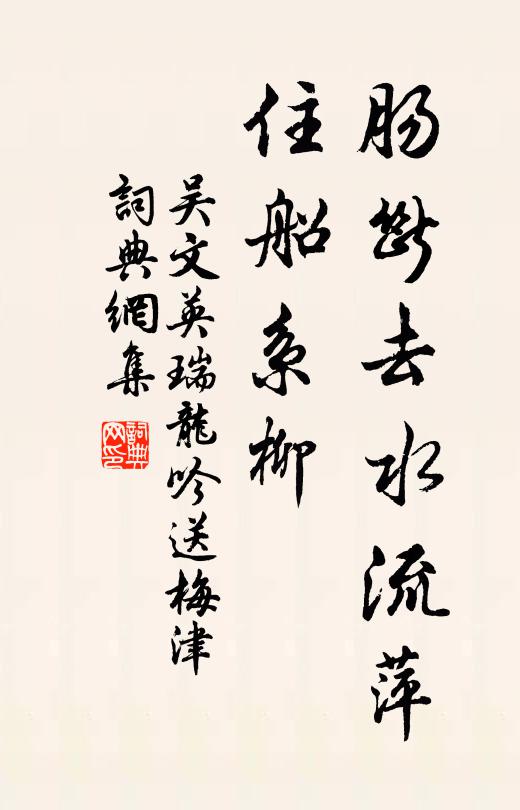 肠斷去水流萍
住船系柳
吴文英瑞龍吟送梅津
詞典網集
詞典网印